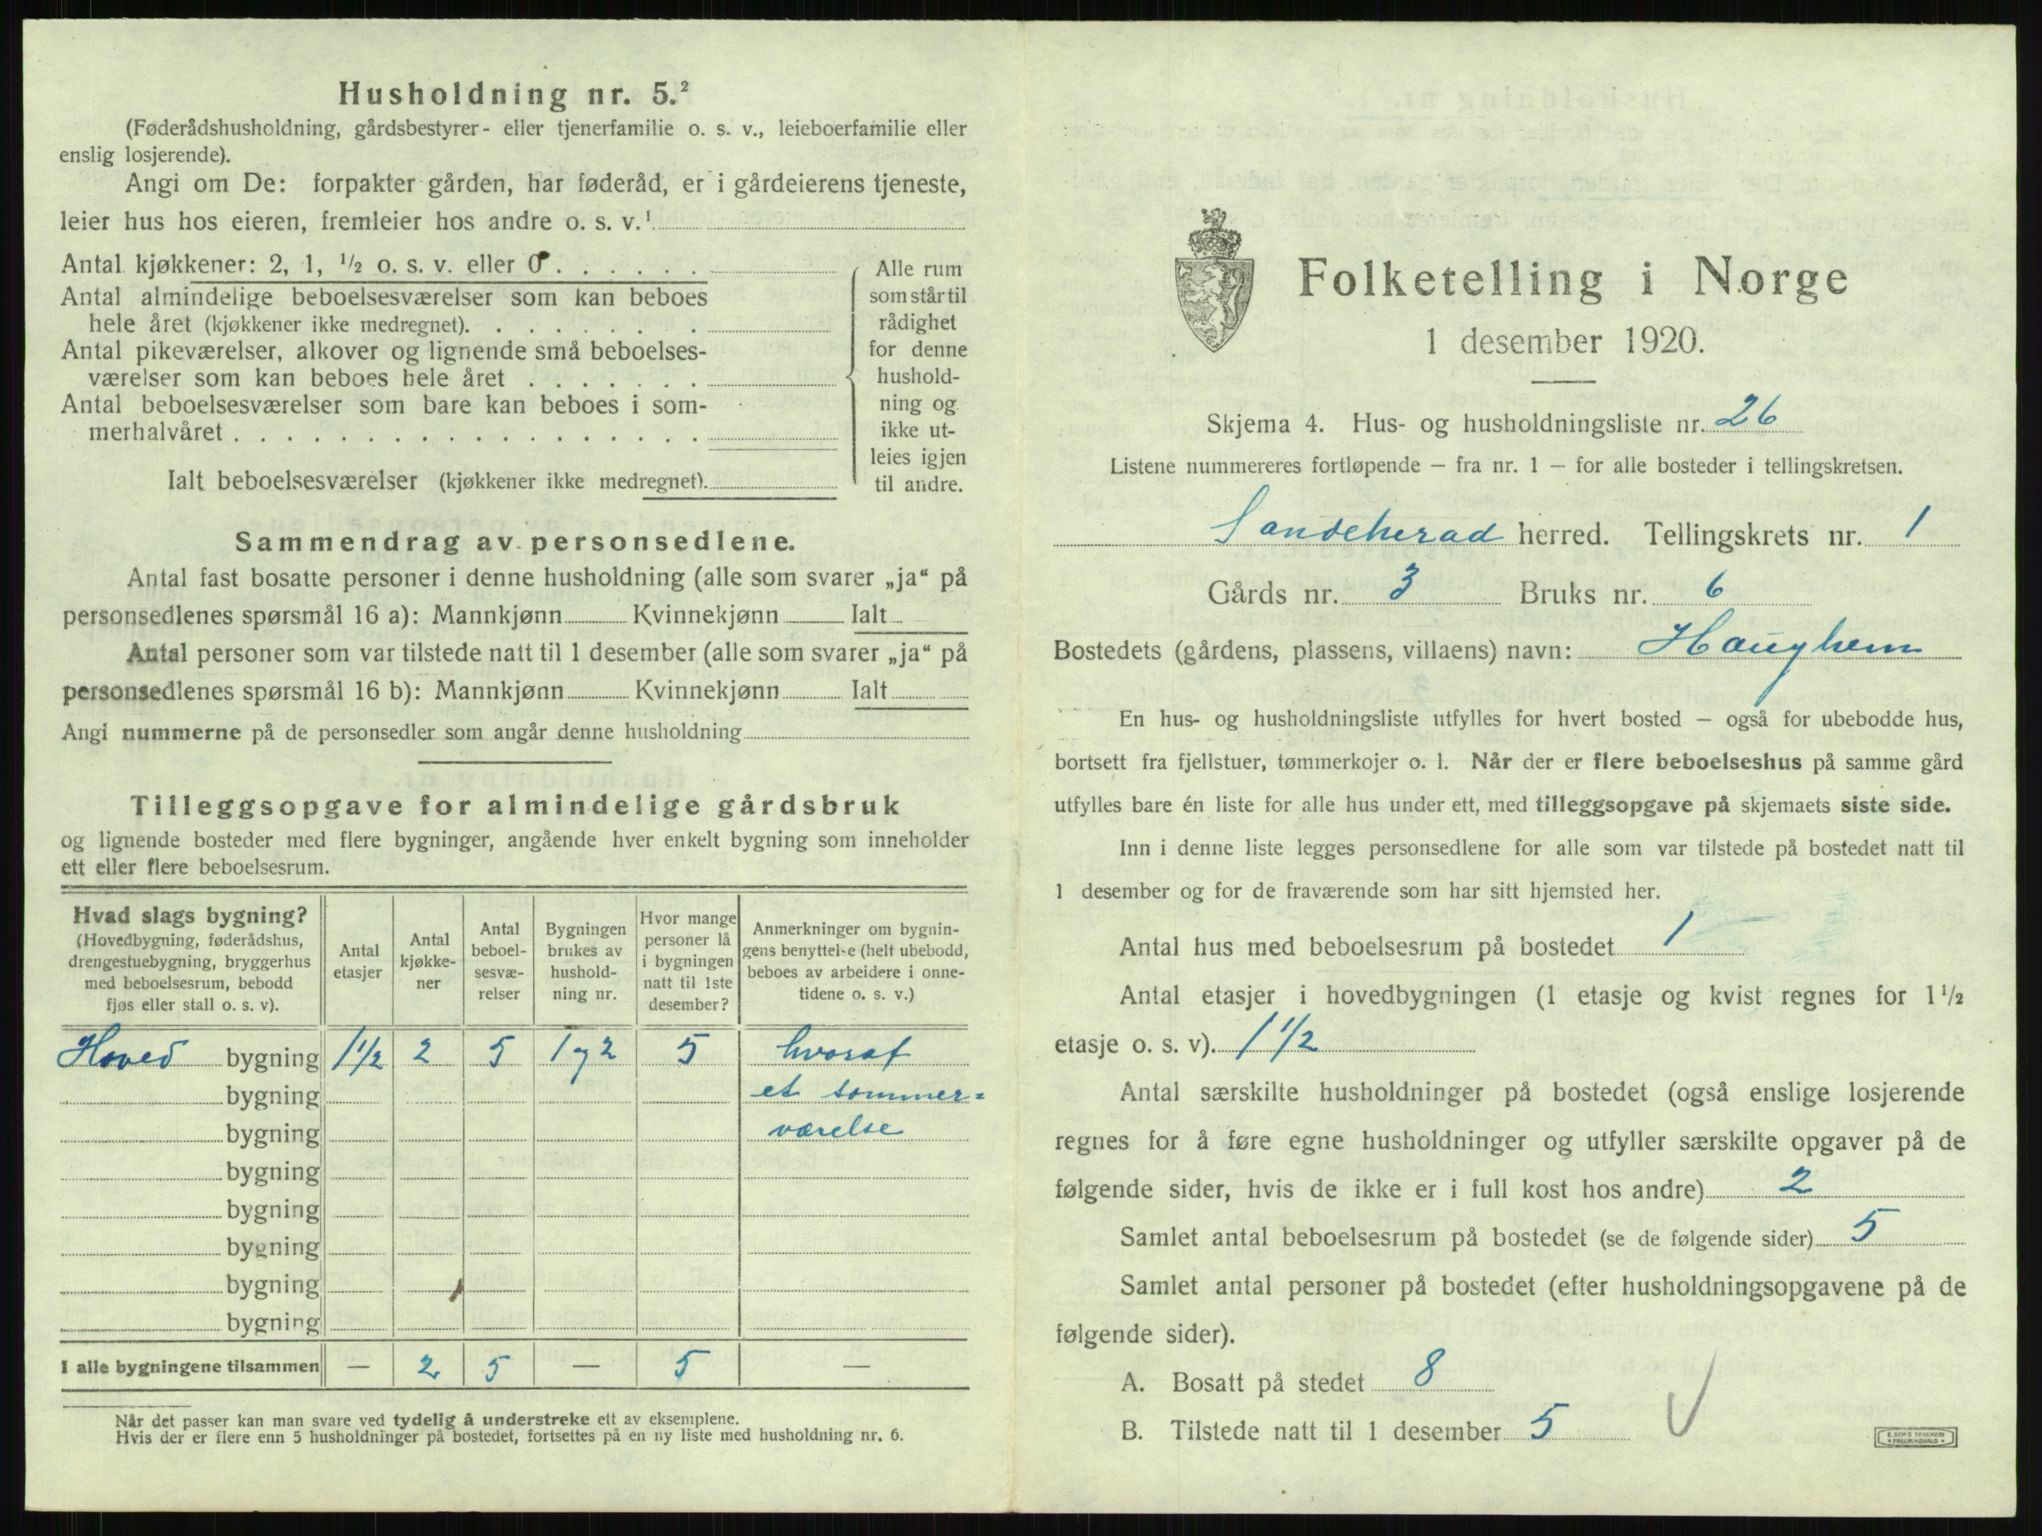 Husholdning nr. 5.²
(Føderådshusholdning, gårdsbestyrer- eller tjenerfamilie o. s. v., leieboerfamilie eller
enslig losjerende).
Angi om De: forpakter gården, har føderåd, er i gårdeierens tjeneste,
leier hus hos eieren, fremleier hos andre o. s. v.¹
Antal kjøkkener: 2, 1, ½ o. s. v. eller 0
Antal almindelige beboelsesværelser som kan beboes
hele året (kjøkkener ikke medregnet).
Antal pikeværelser, alkover og lignende små beboelses-
værelser som kan beboes hele året
Antal beboelsesværelser som bare kan beboes i som-
merhalvåret
Ialt beboelsesværelser (kjøkkener ikke medregnet).
Alle rum
som står til
rådighet
for denne
hushold-
ning og
ikke ut-
leies igjen
til andre.
Sammendrag av personsedlene.
Antal fast bosatte personer i denne husholdning (alle som svarer „ja“ på
personsedlenes spørsmål 16 a): Mannkjønn Kvinnekjønn Ialt
Antal personer som var tilstede natt til 1 desember (alle som svarer „ja“ på
personsedlenes spørsmål 16 b): Mannkjønn Kvinnekjønn Ialt
Angi nummerne på de personsedler som angår denne husholdning
Tilleggsopgave for almindelige gårdsbruk
og lignende bosteder med flere bygninger, angående hver enkelt bygning som inneholder
ett eller flere beboelsesrum.
Hvad slags bygning?
(Hovedbygning, føderådshus,
drengestuebygning, bryggerhus
med beboelsesrum, bebodd
fjøs eller stall o. s. v).
Antal
etasjer
Antal
kjøkke-
ner
Antal
beboel-
sesvæ-
relser
Bygningen
brukes av
hushold-
ning nr.
Hvor mange
personer lå
i bygningen
natt til 1ste
desember?
Anmerkninger om bygnin-
gens benyttelse (helt ubebodd,
beboes av arbeidere i onne-
tidene o. s. v.)
Hoved bygning 1½ 2 5 1 og 2 5 hvoraf
bygning et sommer=
bygning værelse
bygning
bygning
bygning
bygning
bygning
I alle bygningene tilsammen — 2 5 — 5 —
Når det passer kan man svare ved tydelig å understreke ett av eksemplene.
Hvis der er flere enn 5 husholdninger på bostedet, fortsettes på en ny liste med husholdning nr. 6.
Folketelling i Norge
1 desember 1920.
Skjema 4. Hus- og husholdningsliste nr. 26
Listene nummereres fortløpende – fra nr. 1 – for alle bosteder i tellingskretsen.
Sandeherad herred. Tellingskrets nr. 1
Gårds nr. 3 Bruks nr. 6
Bostedets (gårdens, plassens, villaens) navn: Haughem
En hus- og husholdningsliste utfylles for hvert bosted – også for ubebodde hus,
bortsett fra fjellstuer, tømmerkojer o. l. Når der er flere beboelseshus på samme gård
utfylles bare én liste for alle hus under ett, med tilleggsopgave på skjemaets siste side.
Inn i denne liste legges personsedlene for alle som var tilstede på bostedet natt til
1 desember og for de fraværende som har sitt hjemsted her.
Antal hus med beboelsesrum på bostedet 1
Antal etasjer i hovedbygningen (1 etasje og kvist regnes for 1½
etasje o. s. v). 1½
Antal særskilte husholdninger på bostedet (også enslige losjerende
regnes for å føre egne husholdninger og utfyller særskilte opgaver på de
følgende sider, hvis de ikke er i full kost hos andre) 2
Samlet antal beboelsesrum på bostedet (se de følgende sider) 5
Samlet antal personer på bostedet (efter husholdningsopgavene på de
følgende sider).
A. Bosatt på stedet 8
B. Tilstede natt til 1 desember 5